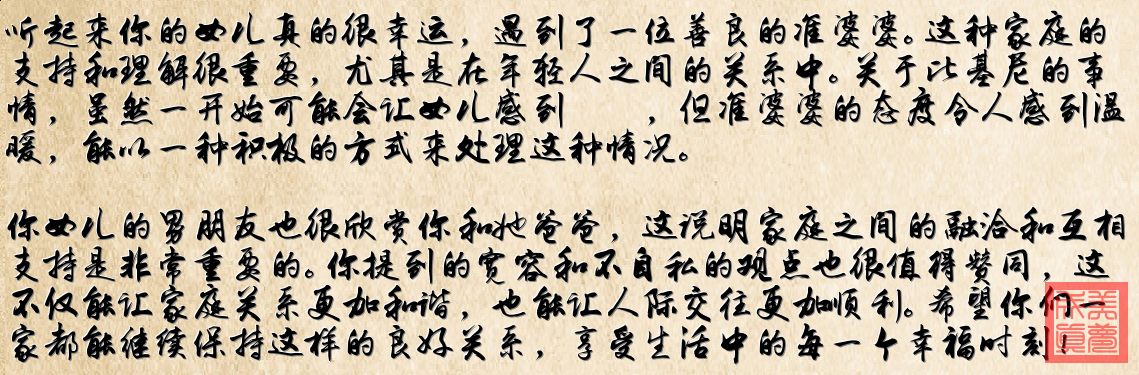 听起来你的女儿真的很幸运，遇到了一位善良的准婆婆。这种家庭的
支持和理解很重要，尤其是在年轻人之间的关系中。关于比基尼的事
情，虽然一开始可能会让女儿感到　　，但准婆婆的态度令人感到温
暖，能以一种积极的方式来处理这种情况。
你女儿的男朋友也很欣赏你和她爸爸，这说明家庭之间的融洽和互相
支持是非常重要的。你提到的宽容和不自私的观点也很值得赞同，这
不仅能让家庭关系更加和谐，也能让人际交往更加顺利。希望你们一
家都能继续保持这样的良好关系，享受生活中的每一个幸福时刻！